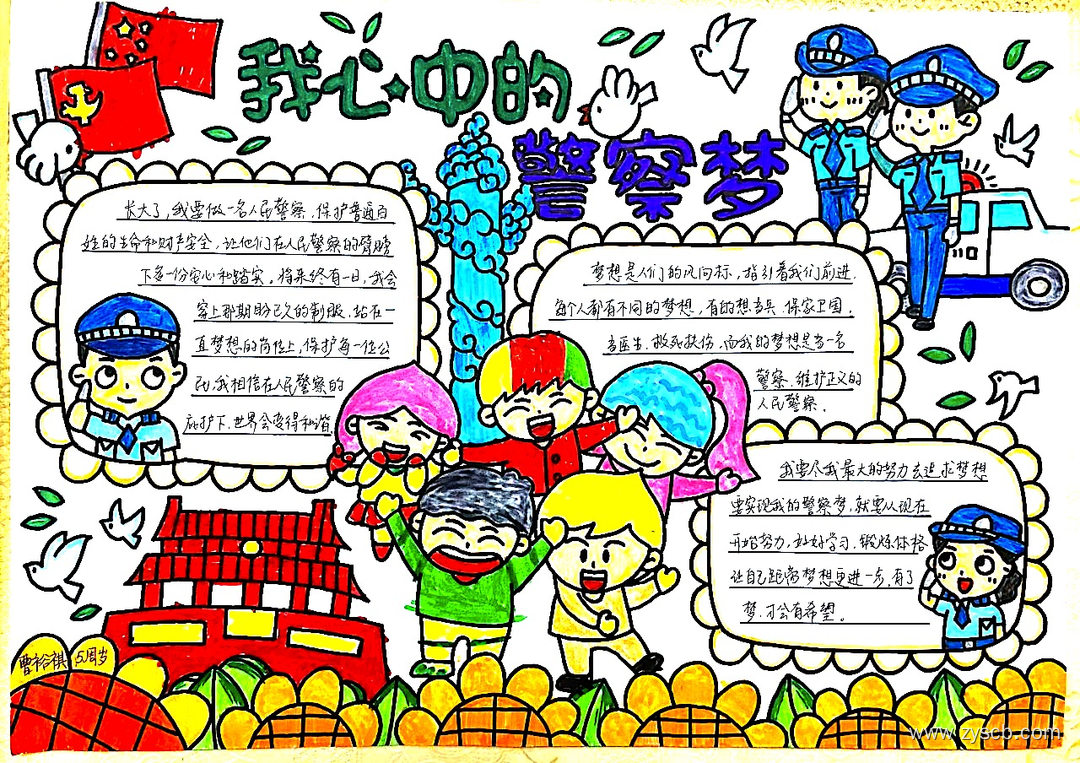 我心中的
警察梦
长大了，我要做一名人民警察，保护普通百
姓的生命和财产安全，让他们在人民警察的臂膀
下多一份安心和踏实，将来终有一日，我会
穿上那期盼已久的制服，站在一
直梦想的岗位上，保护每一位公
民，我相信在人民警察的
庇护下，世界会变得和谐。
梦想是人们的风向标，指引着我们前进，
每个人都有不同的梦想，有的想当兵，保家卫国，
当医生，救死扶伤，而我的梦想是当一名
警察，维护正义的
人民警察。
我要尽我最大的努力去追求梦想
要实现我的警察梦，就要从现在
开始努力，好好学习，锻炼体格
让自己距离梦想更进一步，有了
梦，才会有希望。
曹裕祺 5周岁
www.zyscb.com